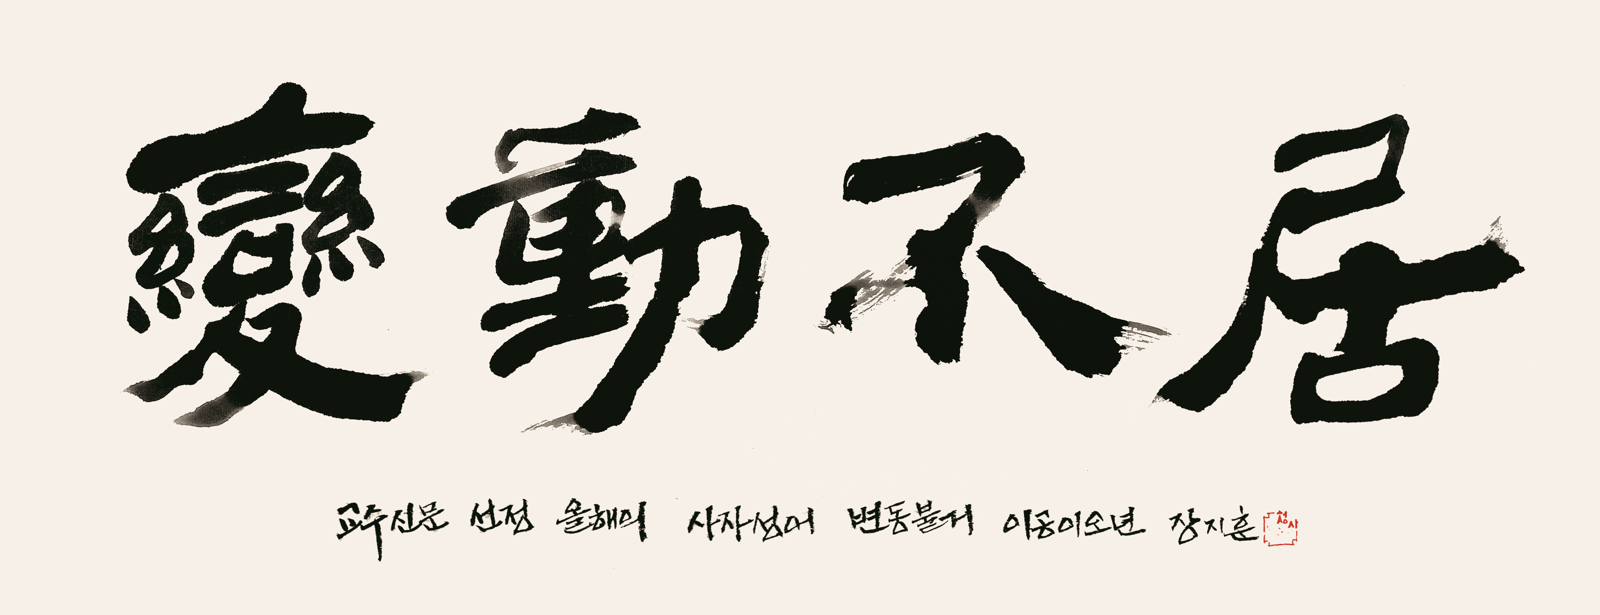 變動不居
교수신문 선정 올해의 사자성어 변동불거 이공이오년 장지훈
청사